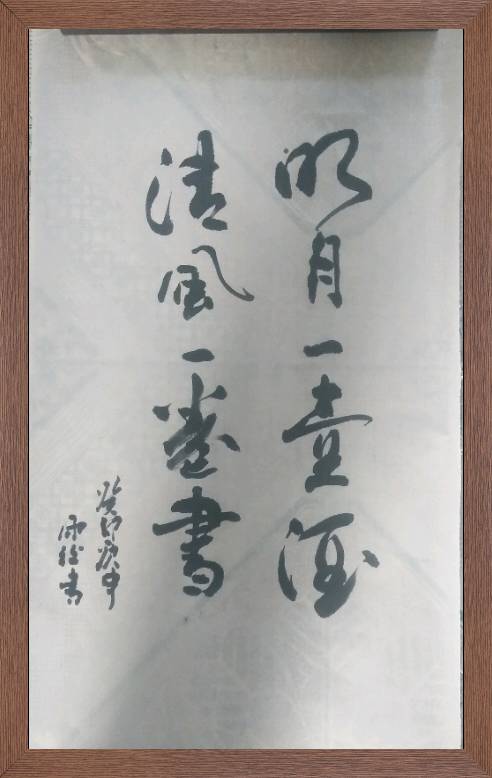 明月一壺酒
清風一卷書
癸卯庚申
雨
書